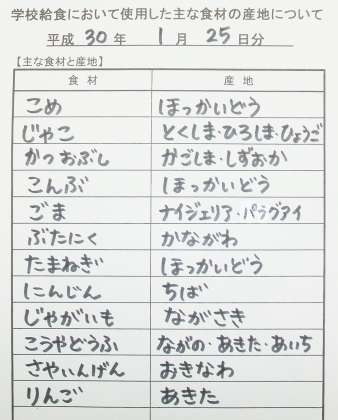 学校給食において使用した主な食材の産地について
平成 30 年 1 月 25 日分
【主な食材と産地】
食材 産地
こめ ほっかいどう
じゃこ とくしま・ひろしま・ひょうご
かつおぶし かごしま・しずおか
こんぶ ほっかいどう
ごま ナイジェリア・パラグアイ
ぶたにく かながわ
たまねぎ ほっかいどう
にんじん ちば
じゃがいも ながさき
こうやどうふ ながの・あきた・あいち
さやいんげん おきなわ
りんご あきた